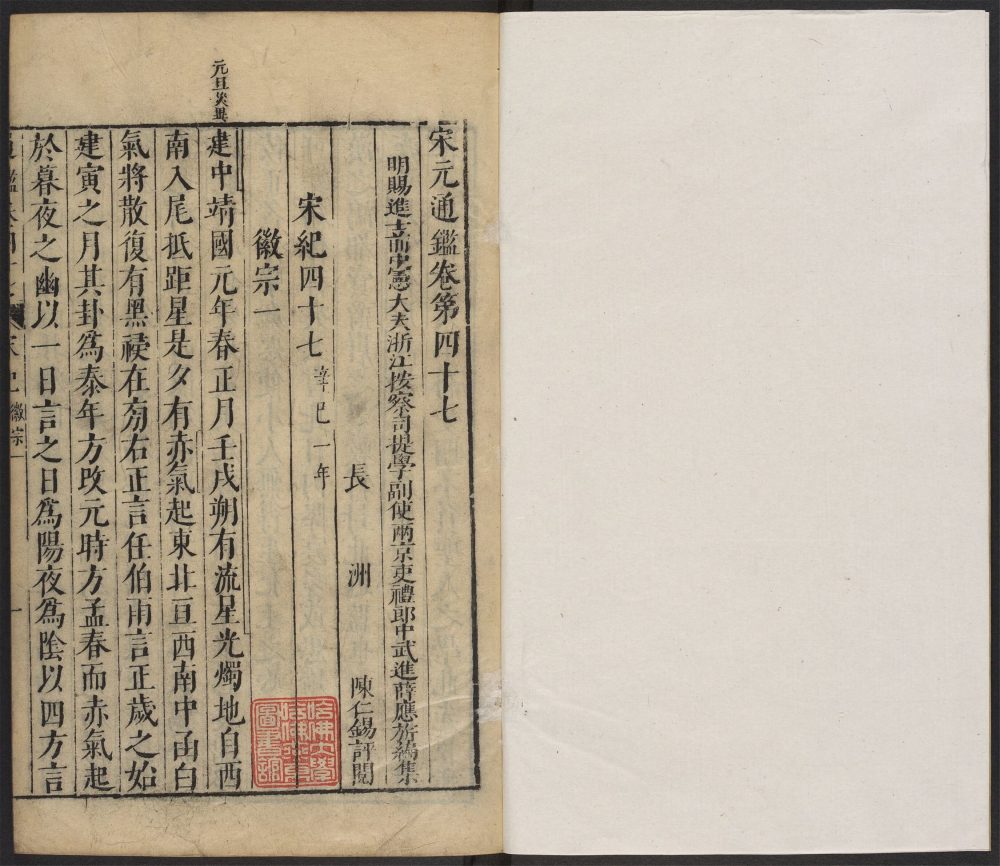 宋元通鑑卷第四十七
明賜進士中憲大夫浙江按察司提學副使兩京吏禮郎中武進薛應旂編集
長洲陳仁錫評閱
宋紀四十七 辛巳一年
徽宗一
元旦災異
建中靖國元年春正月壬戌朔有流星光燭地自西
南入尾抵距星是夕有赤氣起東北亘西南中函白
氣將散復有黑祲在旁右正言任伯雨言正歲之始
建寅之月其卦爲泰年方改元時方孟春而赤氣起
於暮夜之幽以一日言之日爲陽夜爲陰以四方言
宋紀 徽宗一 一
哈佛大學
哈佛燕京
圖書館